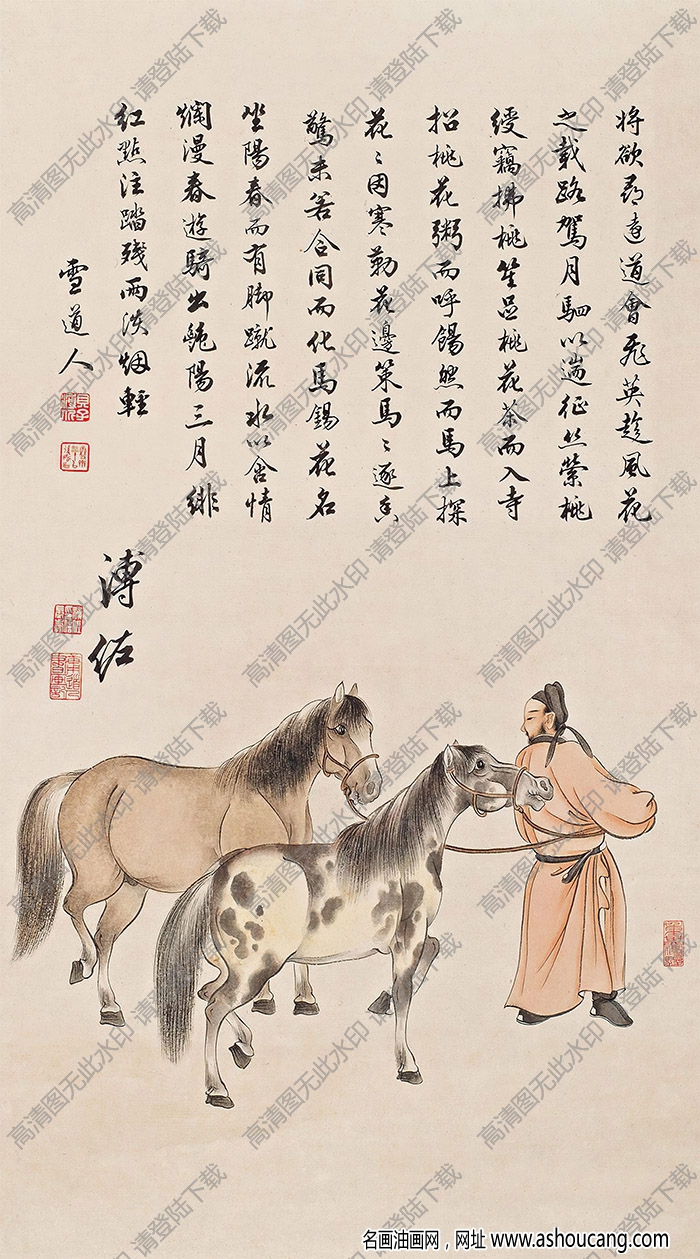 将欲尋遠道會飛英趁風花
之載路駕月駟以遄征丝縈桃
綬竊拂桃笙品桃花茶而入寺
招桃花粥而呼餳然而馬上探
花〻因寒勒花邊策馬〻逐香
驚未若合同而化馬錫花名
坐陽春而有脚蹴流水以含情
爛漫春遊騎出艷陽三月緋
紅點注踏殘雨後烟輕
雪道人
溥佐
高清图无此水印 请登陆下载
名画油画网，网址 www.ashoucang.com